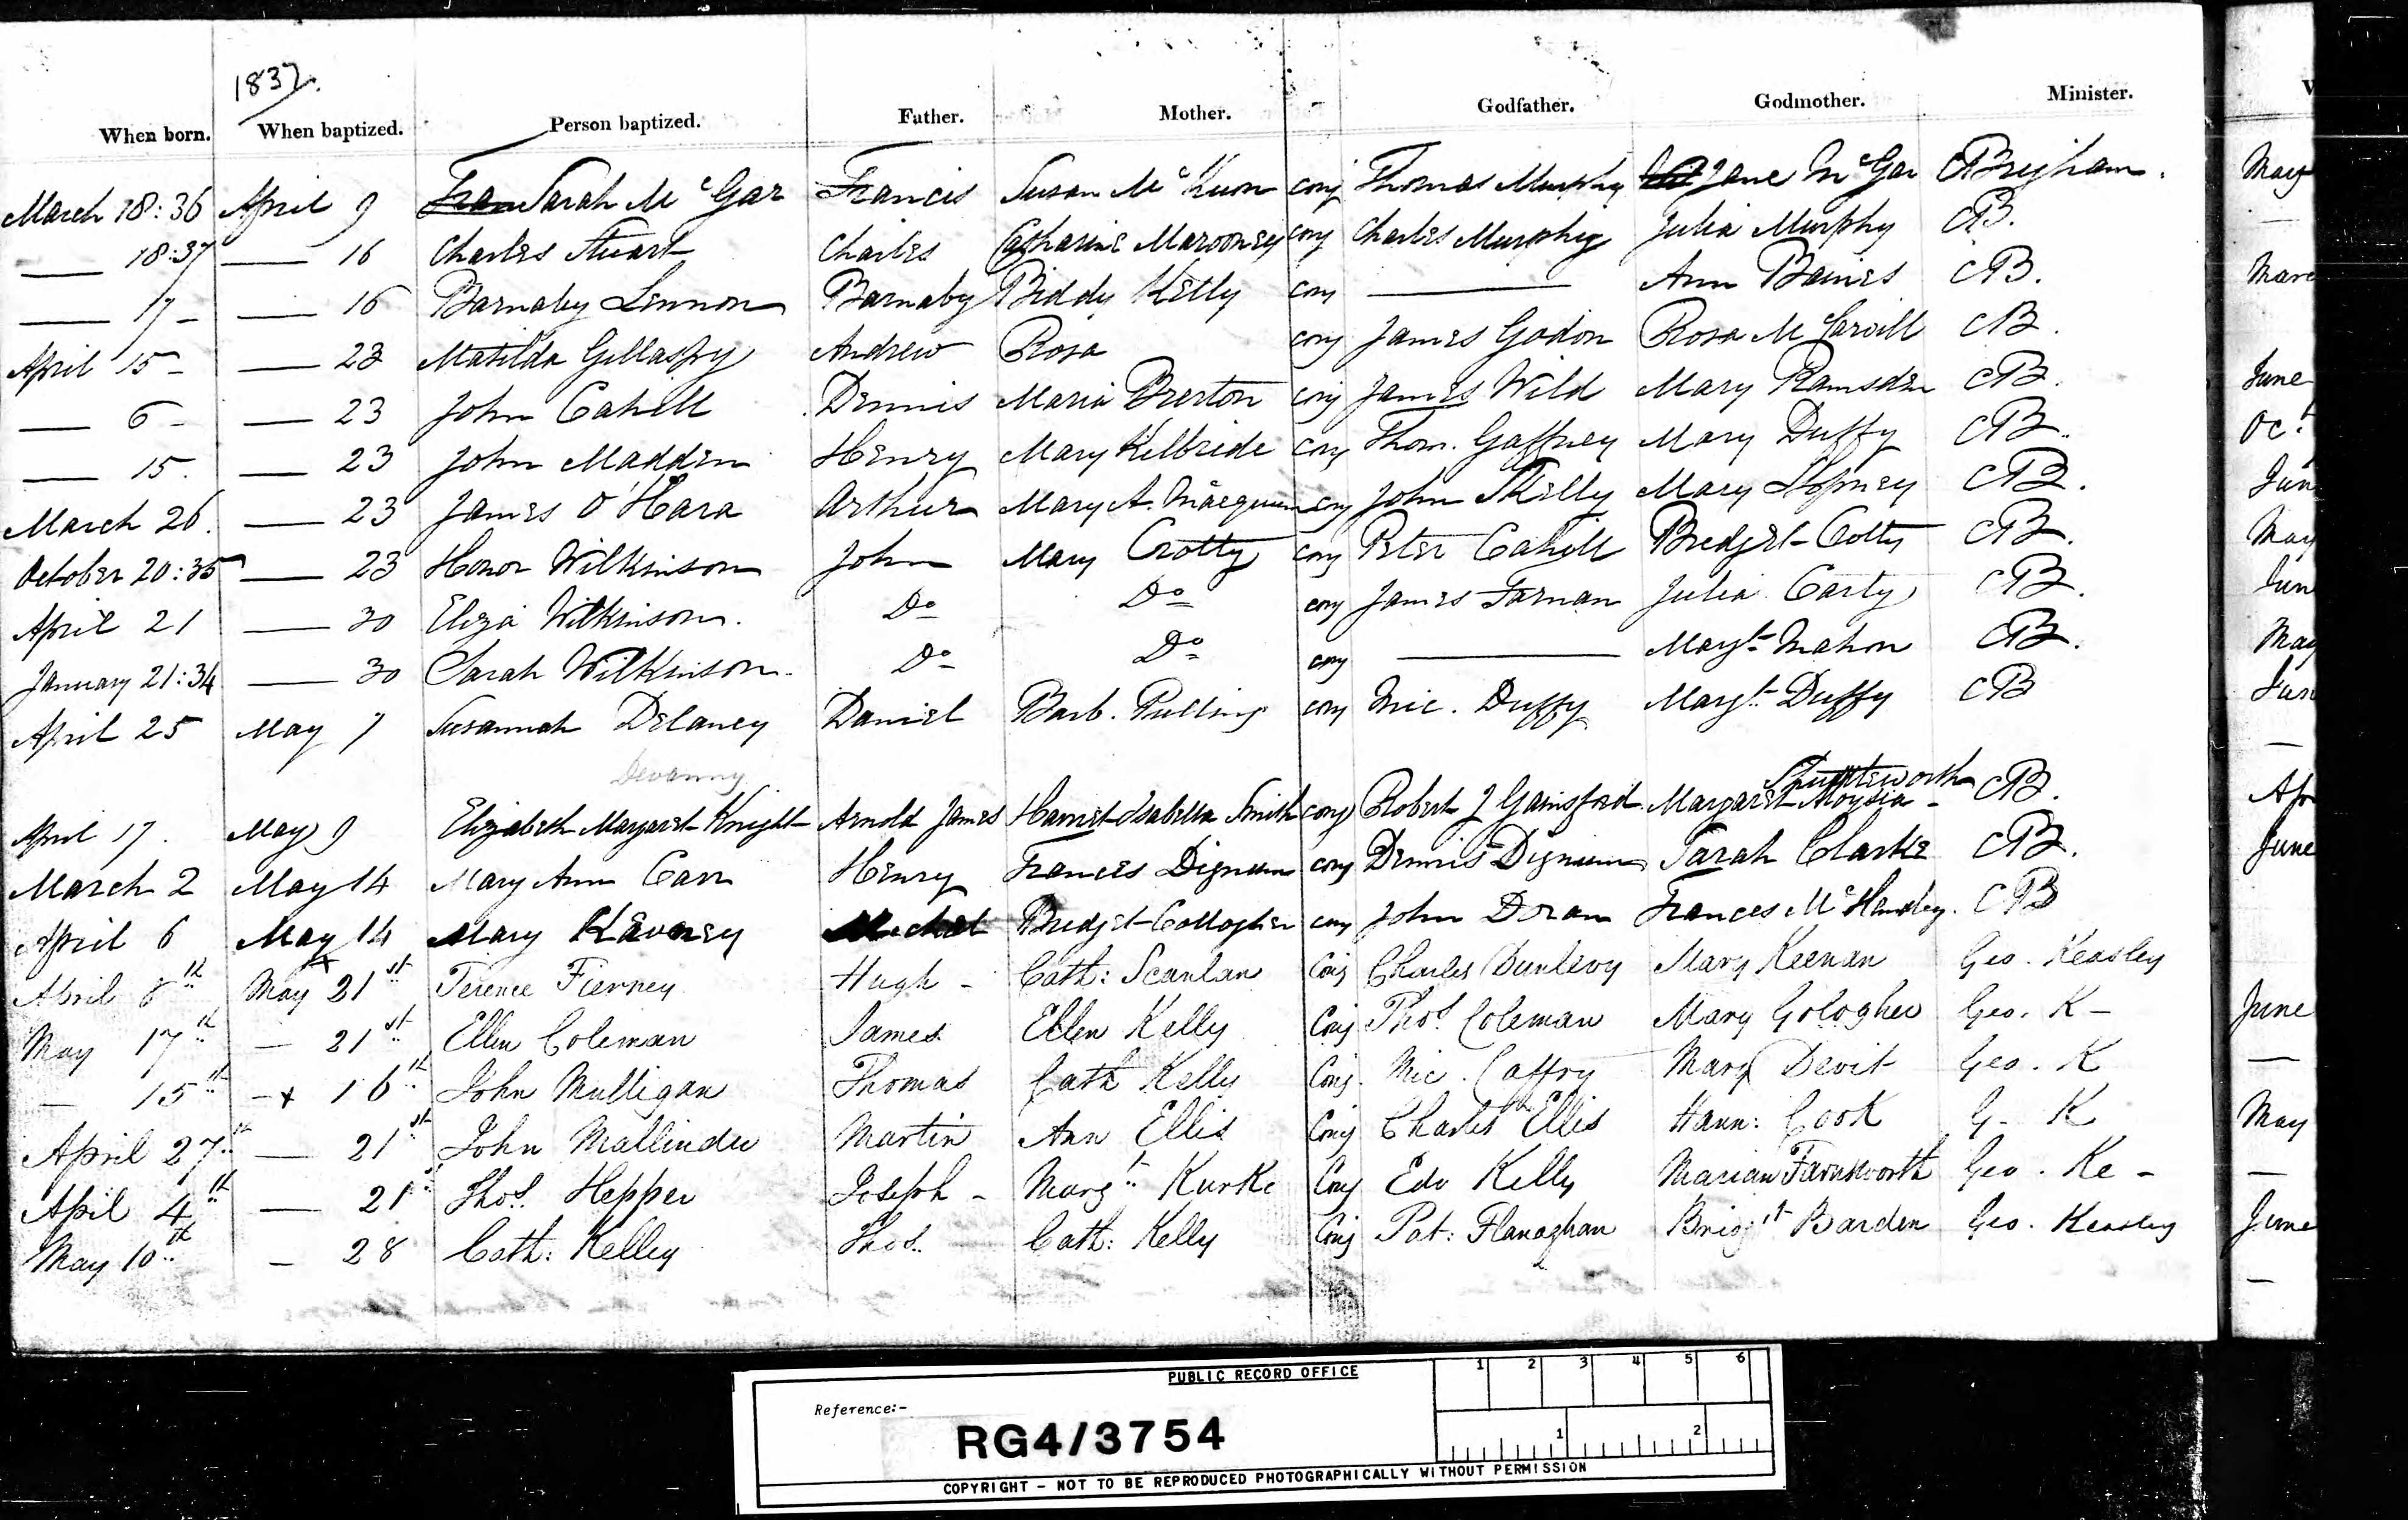 1837.
When born. When baptized. Person baptized. Father. Mother. Godfather. Godmother. Minister.
March 18:36 April 9 Fran Sarah Mc Gar Francis Susan Mc Kuon conj Thomas Murphy Jane McGar CBrigham.
— 18:37 — 16 Charles Stuart Charles Catharine Marooney conj Charles Murphy Julia Murphy CB.
— 17 — — 16 Barnaby Lennon Barnaby Biddy Kelly conj — Ann Baines CB.
April 15 — — 23 Matilda Gillaspy Andrew Rosa conj James Godon Rosa McCarvill CB.
— 6 — — 23 John Cahill Dennis Maria Brerton conj James Wild Mary Ramsden CB.
— 15. — 23 John Madden Henry Mary Kilbride conj Thom. Gaffney Mary Duffy CB.
March 26. — 23 James O'Hara Arthur Mary A. conj John Skelly Mary CB.
October 20:35 — 23 Honor Wilkinson John Mary Crotty conj Peter Cahill Bredget Cotty CB.
April 21 — 30 Eliza Wilkinson. Do Do conj James Farnan Julia Carty CB.
January 21:34 — 30 Sarah Wilkinson. Do Do conj — Mary.t Mahon CB.
April 25 May 7 Susannah Delaney Daniel Barb. Pulling conj Mic. Duffy Mary.t Duffy CB
Devanny
Shuttleworth
April 17. May 9 Elizabeth Margaret Knight Arnold James Harriet Isabella Smith conj Robert J Gainsford Margaret Aloysia — CB.
March 2 May 14 Mary Ann Carr Henry Frances Dignum conj Dennis Dignum Sarah Clarke CB.
April 6 May 14 Mary Kevney Michal Bredget Gollogher conj John Doran Frances McHandley. CB
April 8th May 21st Terence Tierney Hugh — Cath: Scanlan Conj Charles Dunlevy Mary Keenan Geo. Keasley
May 17th — 21st Ellen Coleman James Ellen Kelly Conj Thos. Coleman Mary Gologher Geo. K —
— 15th — x 16th John Mulligan Thomas Cath Kelly Conj. Mic. Caffry Mary Devit Geo. K
April 27th — 21st John Mallinder Martin Ann Ellis Conj Charles Ellis Hann: Cook G. K
April 4th — 21st Thos. Hepper Joseph — Marg.t Kurke Conj Edw Kelly Marian Farnsworth Geo. Ke —
May 10th — 28 Cath: Kelley Thos. Cath: Kelly Conj Pat: Flanaghan Brigt Barden Geo. Keasley
PUBLIC RECORD OFFICE
1 2 3 4 5 6
Reference:-
RG4/3754
1 2
COPYRIGHT - NOT TO BE REPRODUCED PHOTOGRAPHICALLY WITHOUT PERMISSION
May
June
Oct
May
May
June
June
May
June